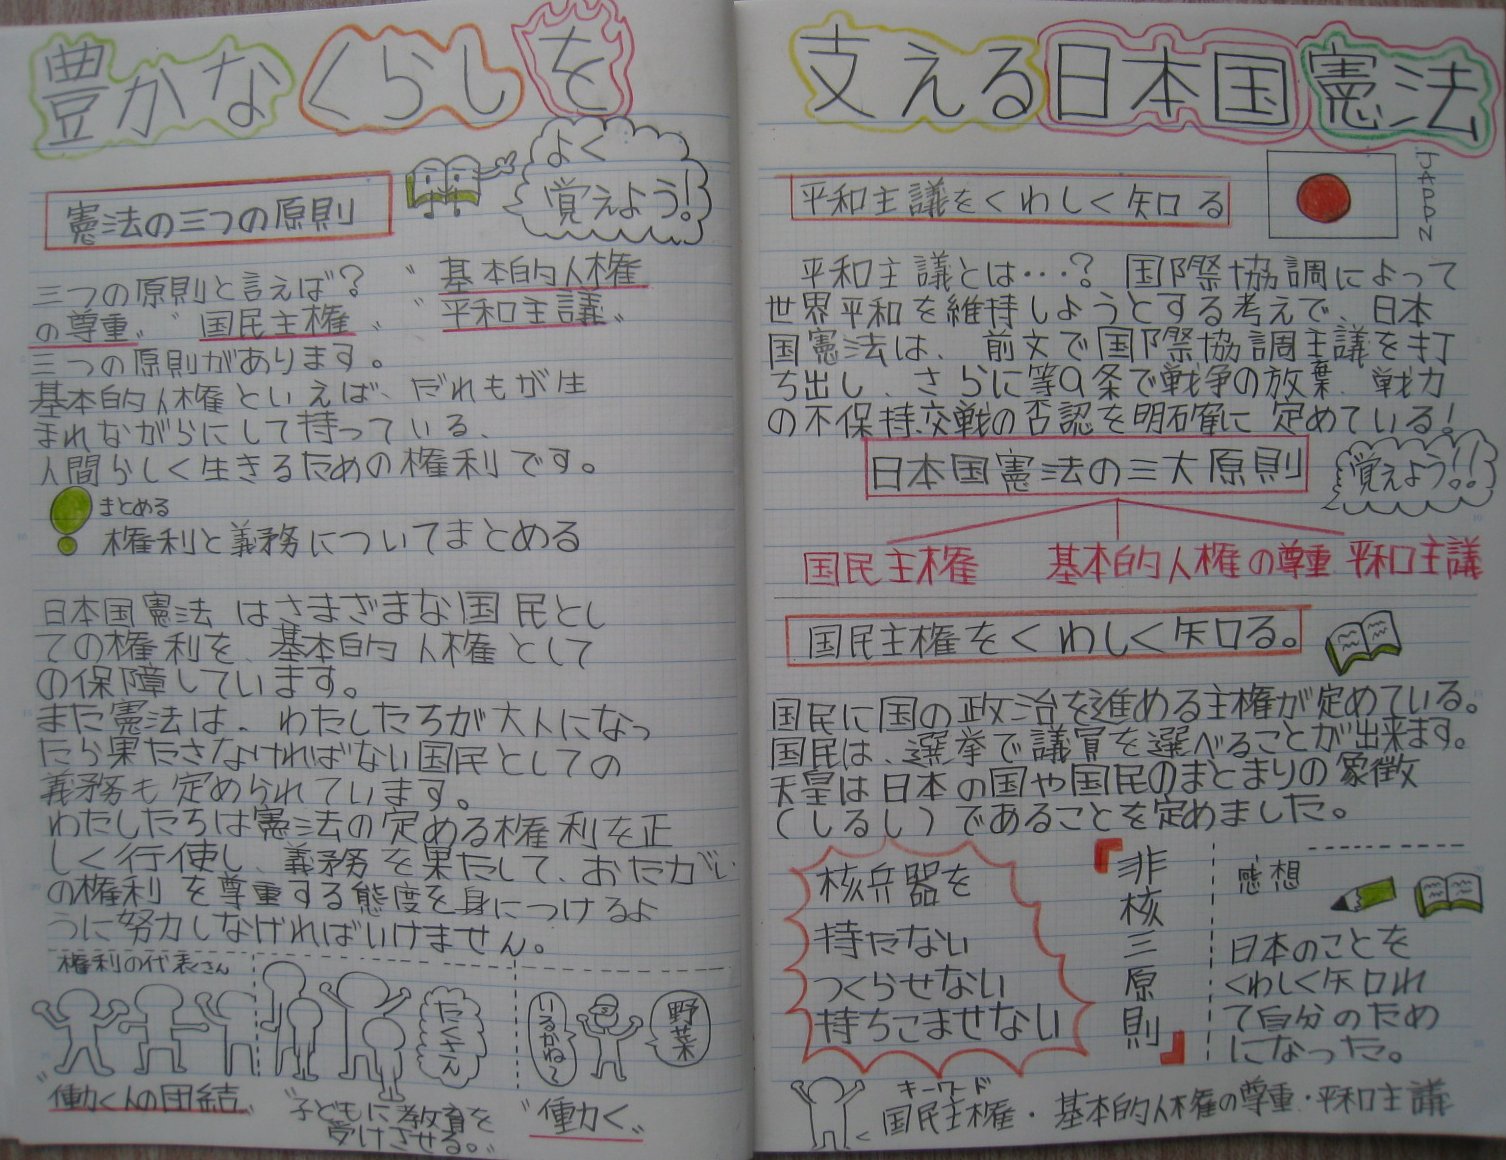 豊かなくらしを
憲法の三つの原則
よく
覚えよう!
三つの原則と言えば? "基本的人権
の尊重" "国民主権" "平和主議"
三つの原則があります。
基本的人権といえば、だれもが生
まれながらにして持っている、
人間らしく生きるための権利です。
まとめる
権利と義務についてまとめる
日本国憲法 はさまざまな国民とし
ての権利を、基本的人権として
の保障しています。
また憲法は、わたしたちが大人になっ
たら果たさなければない国民としての
義務も定められています。
わたしたちは憲法の定める権利を正
しく行使し、義務を果たして、おたがい
の権利を尊重する態度を身につけるよ
うに努力しなければいけません。
権利の代表さん
たくさん
いるかね〜
野菜
"働く人の団結"
"子どもに教育を
受けさせる。"
"働く"
支える日本国憲法
平和主議をくわしく知る
平和主議とは…? 国際協調によって
世界平和を維持しようとする考えで、日本
国憲法は、前文で国際協調主議を打
ち出し、さらに等9条で戦争の放棄、戦力
の不保持、交戦の否認を明確に定めている!
日本国憲法の三大原則
覚えよう!!
国民主権 基本的人権の尊重 平和主議
国民主権をくわしく知る。
国民に国の政治を進める主権が定めている。
国民は、選挙で議員を選べることが出来ます。
天皇は日本の国や国民のまとまりの象徴
(しるし)であることを定めました。
核兵器を
持たない
つくらせない
持ちこませない
『非核三原則』
感想
日本のことを
くわしく知れ
て自分のため
になった。
キーワード
国民主権・基本的人権の尊重・平和主議